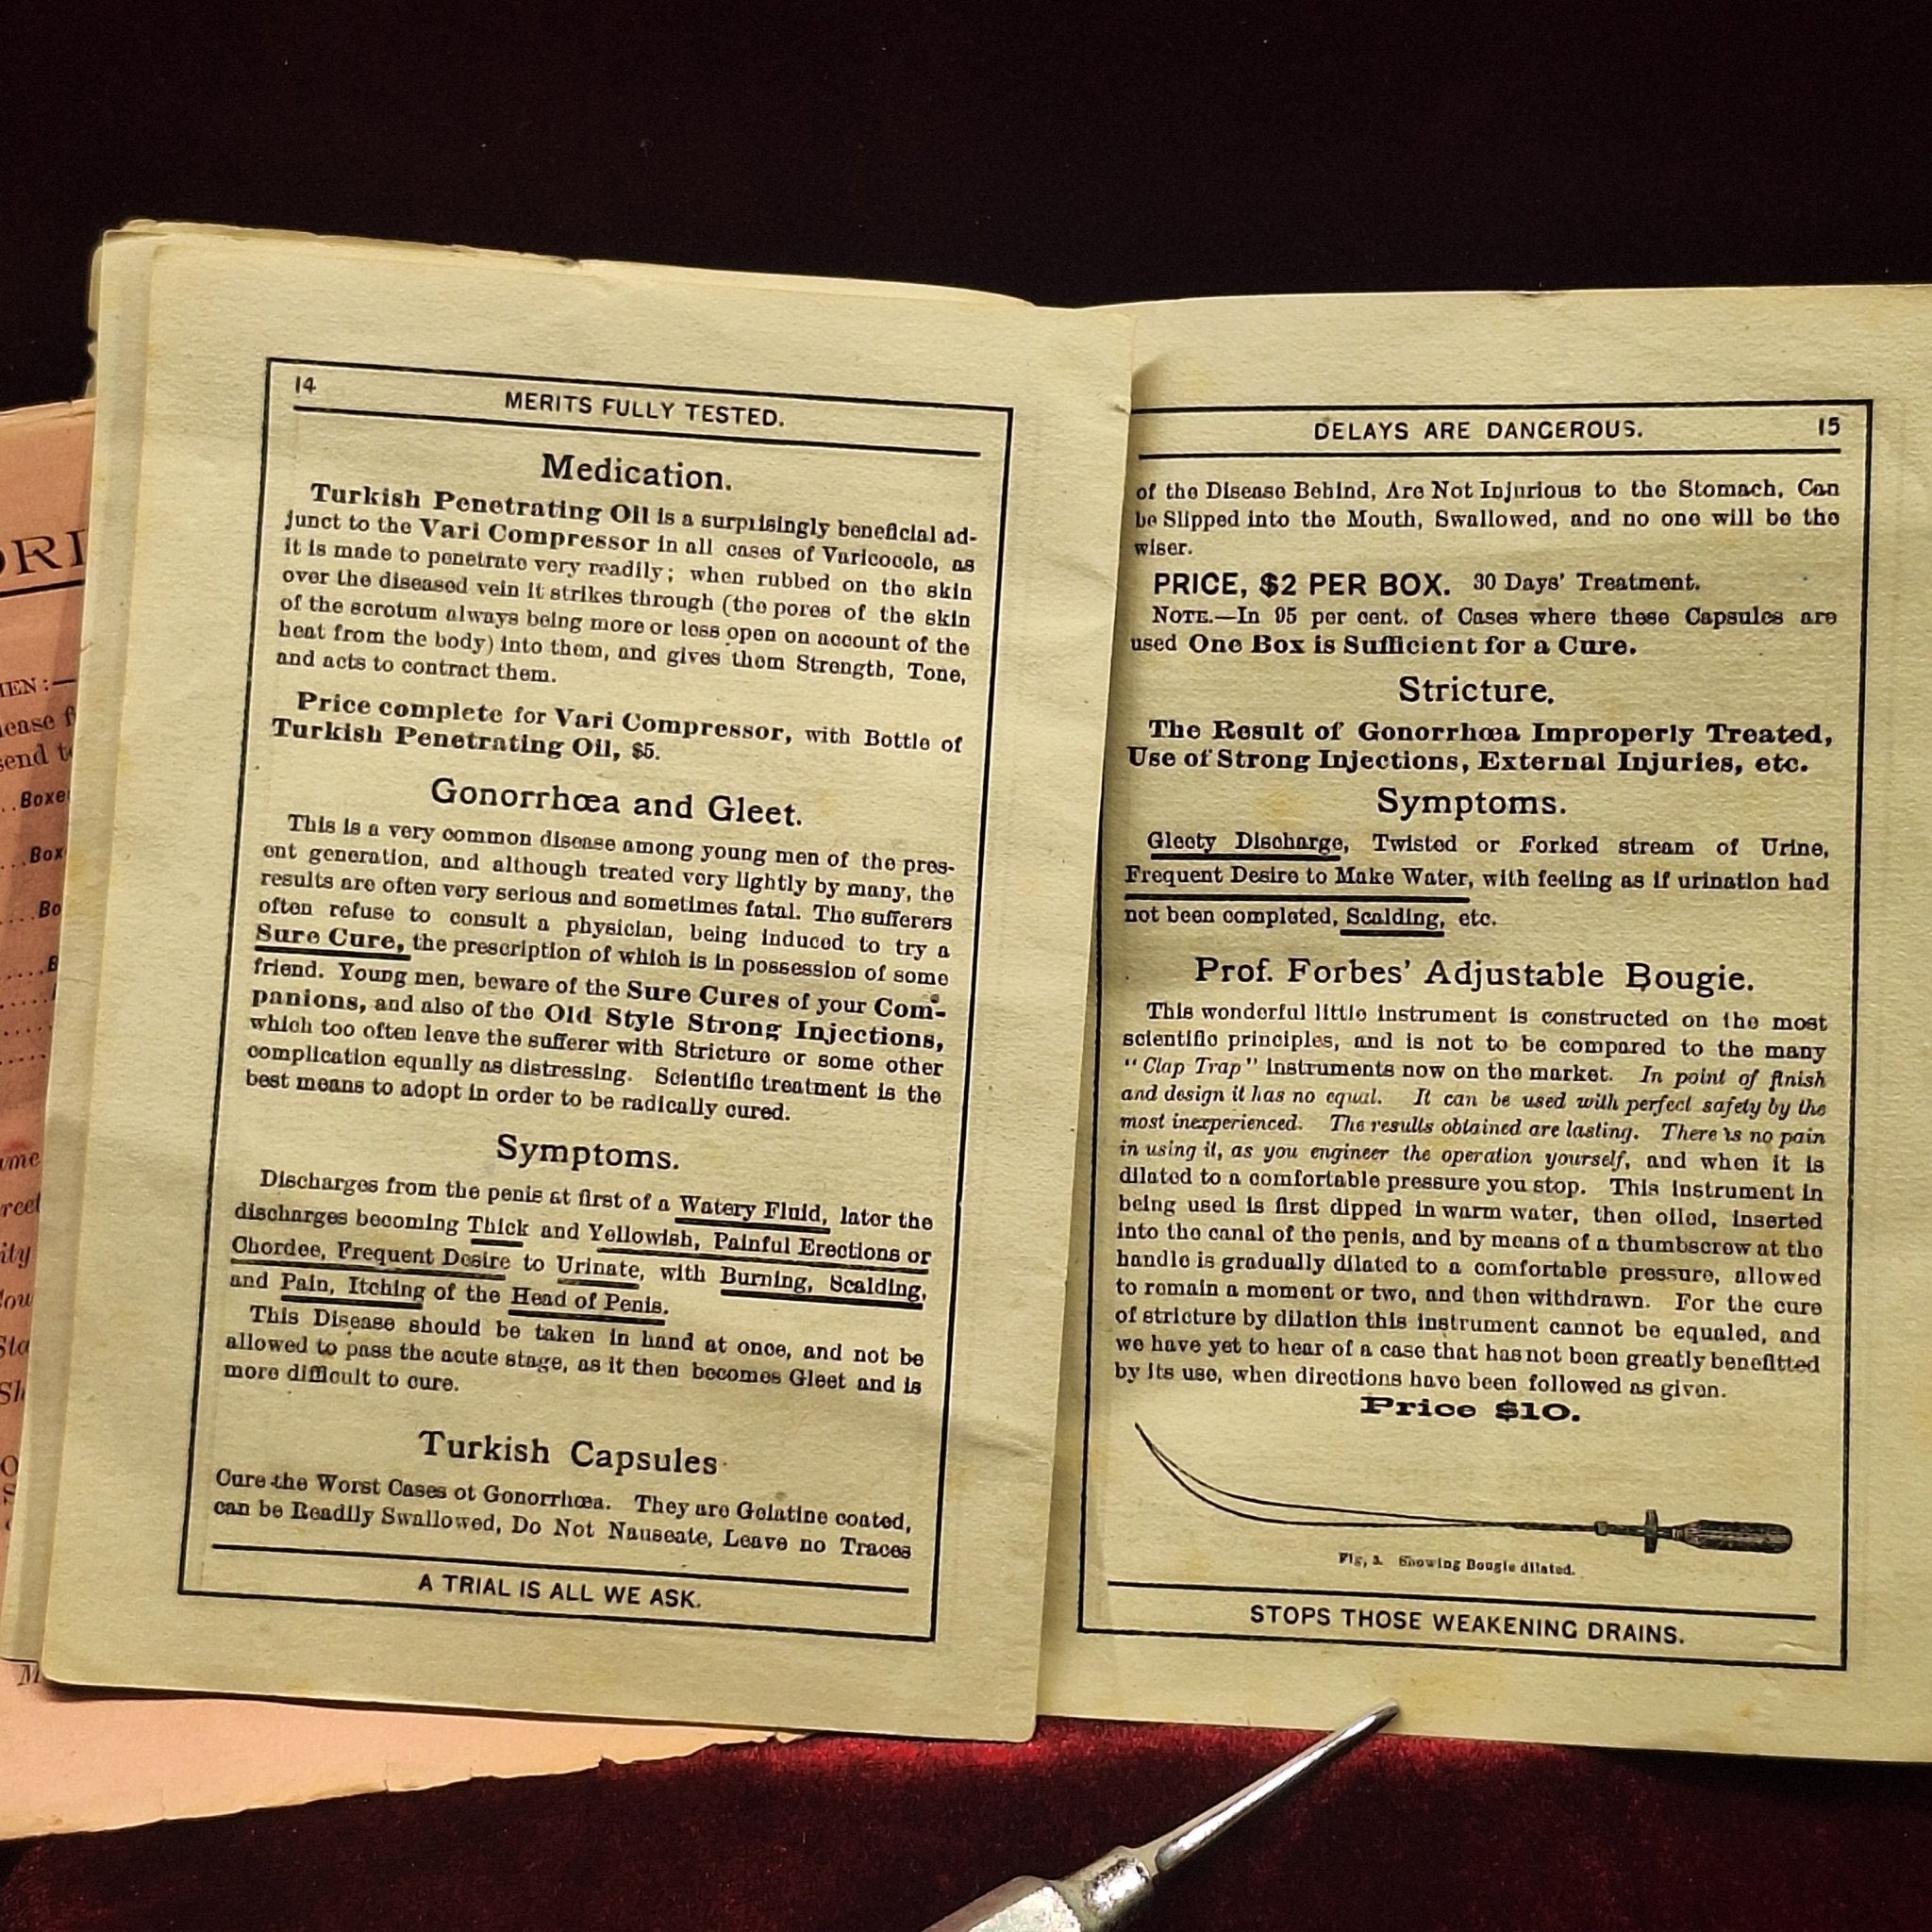 14
MERITS FULLY TESTED.
Medication.
Turkish Penetrating Oil is a surprisingly beneficial ad-
junct to the Vari Compressor in all cases of Varicocele, as
it is made to penetrate very readily; when rubbed on the skin
over the diseased vein it strikes through (the pores of the skin
of the scrotum always being more or less open on account of the
heat from the body) into them, and gives them Strength, Tone,
and acts to contract them.
Price complete for Vari Compressor, with Bottle of
Turkish Penetrating Oil, $5.
Gonorrhœa and Gleet.
This is a very common disease among young men of the pres-
ent generation, and although treated very lightly by many, the
results are often very serious and sometimes fatal. The sufferers
often refuse to consult a physician, being induced to try a
Sure Cure, the prescription of which is in possession of some
friend. Young men, beware of the Sure Cures of your Com-
panions, and also of the Old Style Strong Injections,
which too often leave the sufferer with Stricture or some other
complication equally as distressing. Scientific treatment is the
best means to adopt in order to be radically cured.
Symptoms.
Discharges from the penis at first of a Watery Fluid, later the
discharges becoming Thick and Yellowish, Painful Erections or
Chordee, Frequent Desire to Urinate, with Burning, Scalding,
and Pain, Itching of the Head of Penis.
This Disease should be taken in hand at once, and not be
allowed to pass the acute stage, as it then becomes Gleet and is
more difficult to cure.
Turkish Capsules
Cure the Worst Cases of Gonorrhœa. They are Gelatine coated,
can be Readily Swallowed, Do Not Nauseate, Leave no Traces
A TRIAL IS ALL WE ASK.
DELAYS ARE DANGEROUS. 15
of the Disease Behind, Are Not Injurious to the Stomach, Can
be Slipped into the Mouth, Swallowed, and no one will be the
wiser.
PRICE, $2 PER BOX. 30 Days' Treatment.
NOTE.—In 95 per cent. of Cases where these Capsules are
used One Box is Sufficient for a Cure.
Stricture.
The Result of Gonorrhœa Improperly Treated,
Use of Strong Injections, External Injuries, etc.
Symptoms.
Gleety Discharge, Twisted or Forked stream of Urine,
Frequent Desire to Make Water, with feeling as if urination had
not been completed, Scalding, etc.
Prof. Forbes' Adjustable Bougie.
This wonderful little instrument is constructed on the most
scientific principles, and is not to be compared to the many
"Clap Trap" instruments now on the market. In point of finish
and design it has no equal. It can be used with perfect safety by the
most inexperienced. The results obtained are lasting. There is no pain
in using it, as you engineer the operation yourself, and when it is
dilated to a comfortable pressure you stop. This instrument in
being used is first dipped in warm water, then oiled, inserted
into the canal of the penis, and by means of a thumbscrew at the
handle is gradually dilated to a comfortable pressure, allowed
to remain a moment or two, and then withdrawn. For the cure
of stricture by dilation this instrument cannot be equaled, and
we have yet to hear of a case that has not been greatly benefitted
by its use, when directions have been followed as given.
Price $10.
Fig, 3. Showing Bougie dilated.
STOPS THOSE WEAKENING DRAINS.